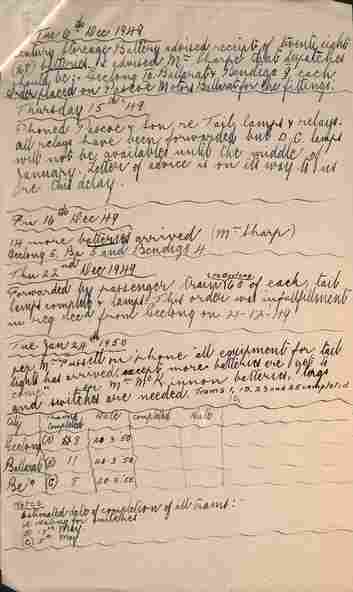 Tue 6th Dec 1949
Century Storage Battery advised receipt of twenty eight
(28) batteries. I advised Mr Sharpe that dispatches
should be:- Geelong 10 Ballarat & Bendigo 9 each
Order placed on Pascoe Motors Ballarat for the fittings.
Thursday 15th '49
Phoned Pascoe & Son re Tail lamps & relays.
all relays have been forwarded but D.C. lamps
will not be available until the middle of
January. Letter of advice is on its way to us
re this delay.
Fri 16th Dec 49
14 more batteries arrived (Mr Sharp)
Geelong 5, Ba 5 and Bendigo 4
Thu 22nd Dec 1949
Forwarded by passenger train 60 of each, tail
lamps complete & lamps. This order was in fulfillment
in req recd from Geelong on 21-12-49
Tue Jan 24th 1950
per Mr Russell on phone all equipment for tail
lights has arrived except more batteries are yet to
come. per Mr McKinnon batteries, lugs
and switches are needed. Trams 1, 12, 23 and 25 completed
City Trams Completed Date Completed Date
Geelong (A) 8 20.3.50
Ballarat (B) 11 20.3.50
Be'o (C) 5 20.3.50
Notes
Estimated date of completion of all Trams:-
A waiting for switches
B May
C 5th May